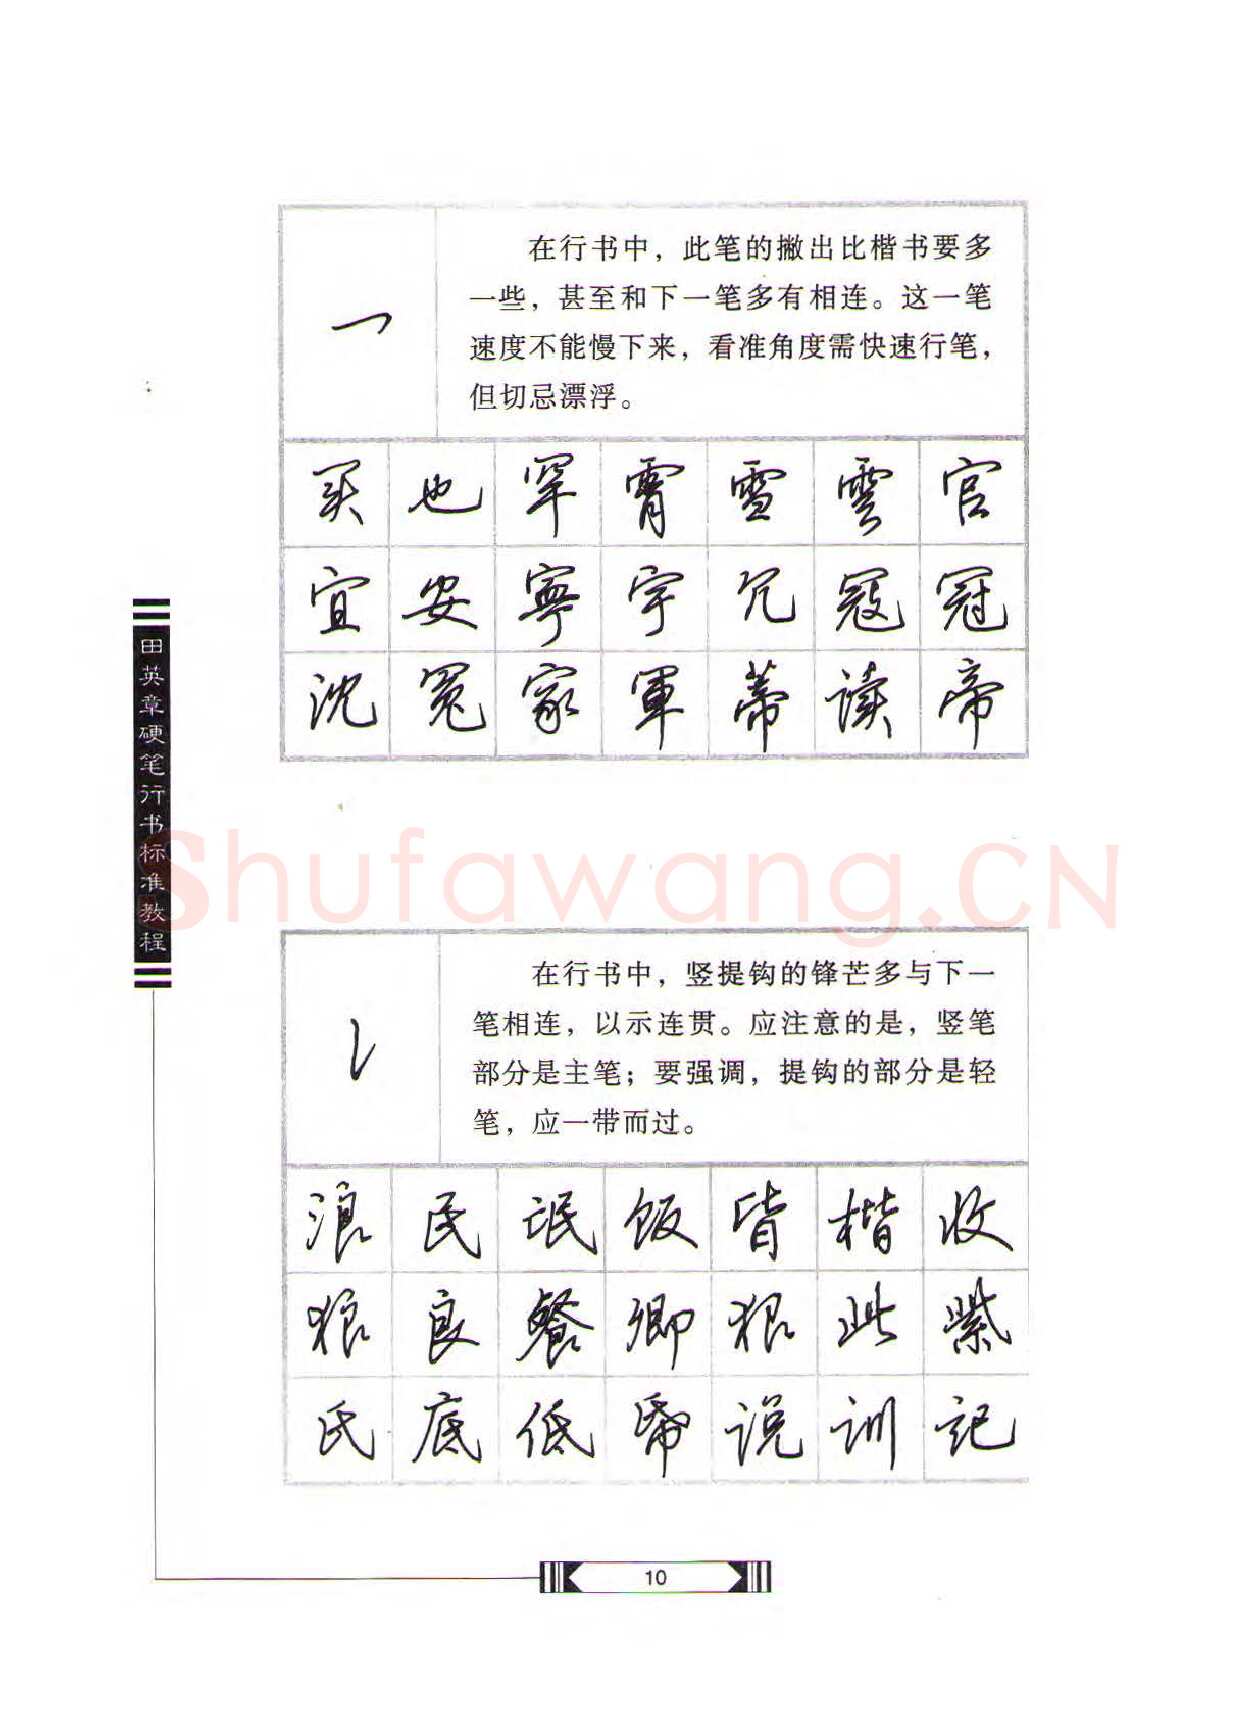 在行书中，此笔的撇出比楷书要多
一些，甚至和下一笔多有相连。这一笔
速度不能慢下来，看准角度需快速行笔，
但切忌漂浮。
买 也 罕 霄 雪 雲 官
宜 安 寧 宇 冗 寇 冠
沈 冤 家 軍 蒂 读 帝
田英章硬笔行书标准教程
Shufawang.CN
在行书中，竖提钩的锋芒多与下一
笔相连，以示连贯。应注意的是，竖笔
部分是主笔；要强调，提钩的部分是轻
笔，应一带而过。
浪 民 泯 饭 皆 楷 收
狼 良 餐 卿 狠 此 紫
氏 底 低 帋 说 训 记
10